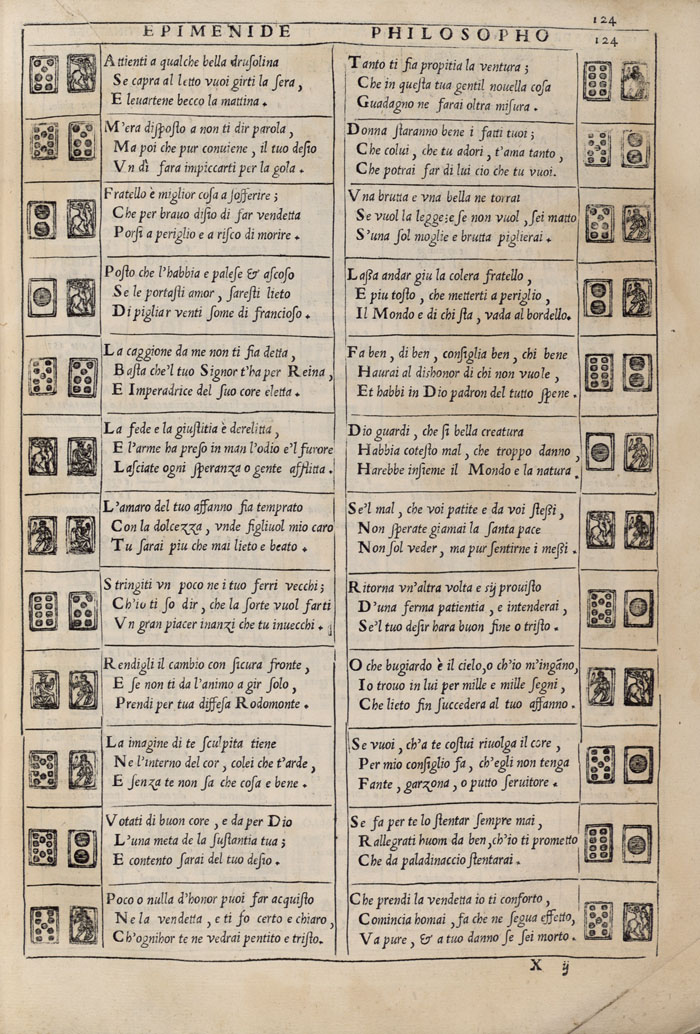 124
EPIMENIDE PHILOSOPHO
124
Attienti a qualche bella drusolina
Se capra al letto vuoi girti la sera,
E leuartene becco la mattina.
M'era disposto a non ti dir parola,
Ma poi che pur conuiene, il tuo desio
Vn dì fara impiccarti per la gola.
Fratello è miglior cosa a sofferire;
Che per brauo disio di far vendetta
Porsi a periglio e a risco di morire.
Posto che l'habbia e palese & ascoso
Se le portasti amor, saresti lieto
Di pigliar venti some di francioso.
La caggione da me non ti fia detta,
Basta che'l tuo Signor t'ha per Reina,
E Imperadrice del suo core eletta.
La fede e la giustitia è derelitta,
E l'arme ha preso in man l'odio e'l furore
Lasciate ogni speranza o gente afflitta.
L'amaro del tuo affanno fia temprato
Con la dolcezza, vnde figliuol mio caro
Tu sarai piu che mai lieto e beato.
Stringiti vn poco ne i tuo ferri vecchi;
Ch'io ti so dir, che la sorte vuol farti
Vn gran piacer inanzi che tu inuecchi.
Rendigli il cambio con sicura fronte,
E se non ti da l'animo a gir solo,
Prendi per tua diffesa Rodomonte.
La imagine di te sculpita tiene
Ne l'interno del cor, colei che t'arde,
E senza te non sa che cosa e bene.
Votati di buon core, e da per Dio
L'una meta de la sustantia tua;
E contento sarai del tuo desio.
Poco o nulla d'honor puoi far acquisto
Ne la vendetta, e ti fo certo e chiaro,
Ch'ognihor te ne vedrai pentito e tristo.
Tanto ti fia propitia la ventura;
Che in questa tua gentil nouella cosa
Guadagno ne farai oltra misura.
Donna staranno bene i fatti tuoi;
Che colui, che tu adori, t'ama tanto,
Che potrai far di lui cio che tu vuoi.
Vna brutta e vna bella ne torrai
Se vuol la legge; e se non vuol, sei matto
S'una sol moglie e brutta piglierai.
Laßa andar giu la colera fratello,
E piu tosto, che metterti a periglio,
Il Mondo e di chi sta, vada al bordello.
Fa ben, di ben, consiglia ben, chi bene
Haurai al dishonor di chi non vuole,
Et habbi in Dio padron del tutto spene.
Dio guardi, che si bella creatura
Habbia cotesto mal, che troppo danno,
Harebbe insieme il Mondo e la natura.
Se'l mal, che voi patite e da voi steßi,
Non sperate giamai la santa pace
Non sol veder, ma pur sentirne i meßi.
Ritorna vn'altra volta e sij prouisto
D'una ferma patientia, e intenderai,
Se'l tuo desir hara buon fine o tristo.
O che bugiardo è il cielo, o ch'io m'ingãno,
Io trouo in lui per mille e mille segni,
Che lieto fin succedera al tuo affanno.
Se vuoi, ch'a te costui riuolga il core,
Per mio consiglio fa, ch'egli non tenga
Fante, garzona, o putto seruitore.
Se fa per te lo stentar sempre mai,
Rallegrati huom da ben, ch'io ti prometto
Che da paladinaccio stentarai.
Che prendi la vendetta io ti conforto,
Comincia homai, fa che ne segua effetto,
Va pure, & a tuo danno se sei morto.
X ij